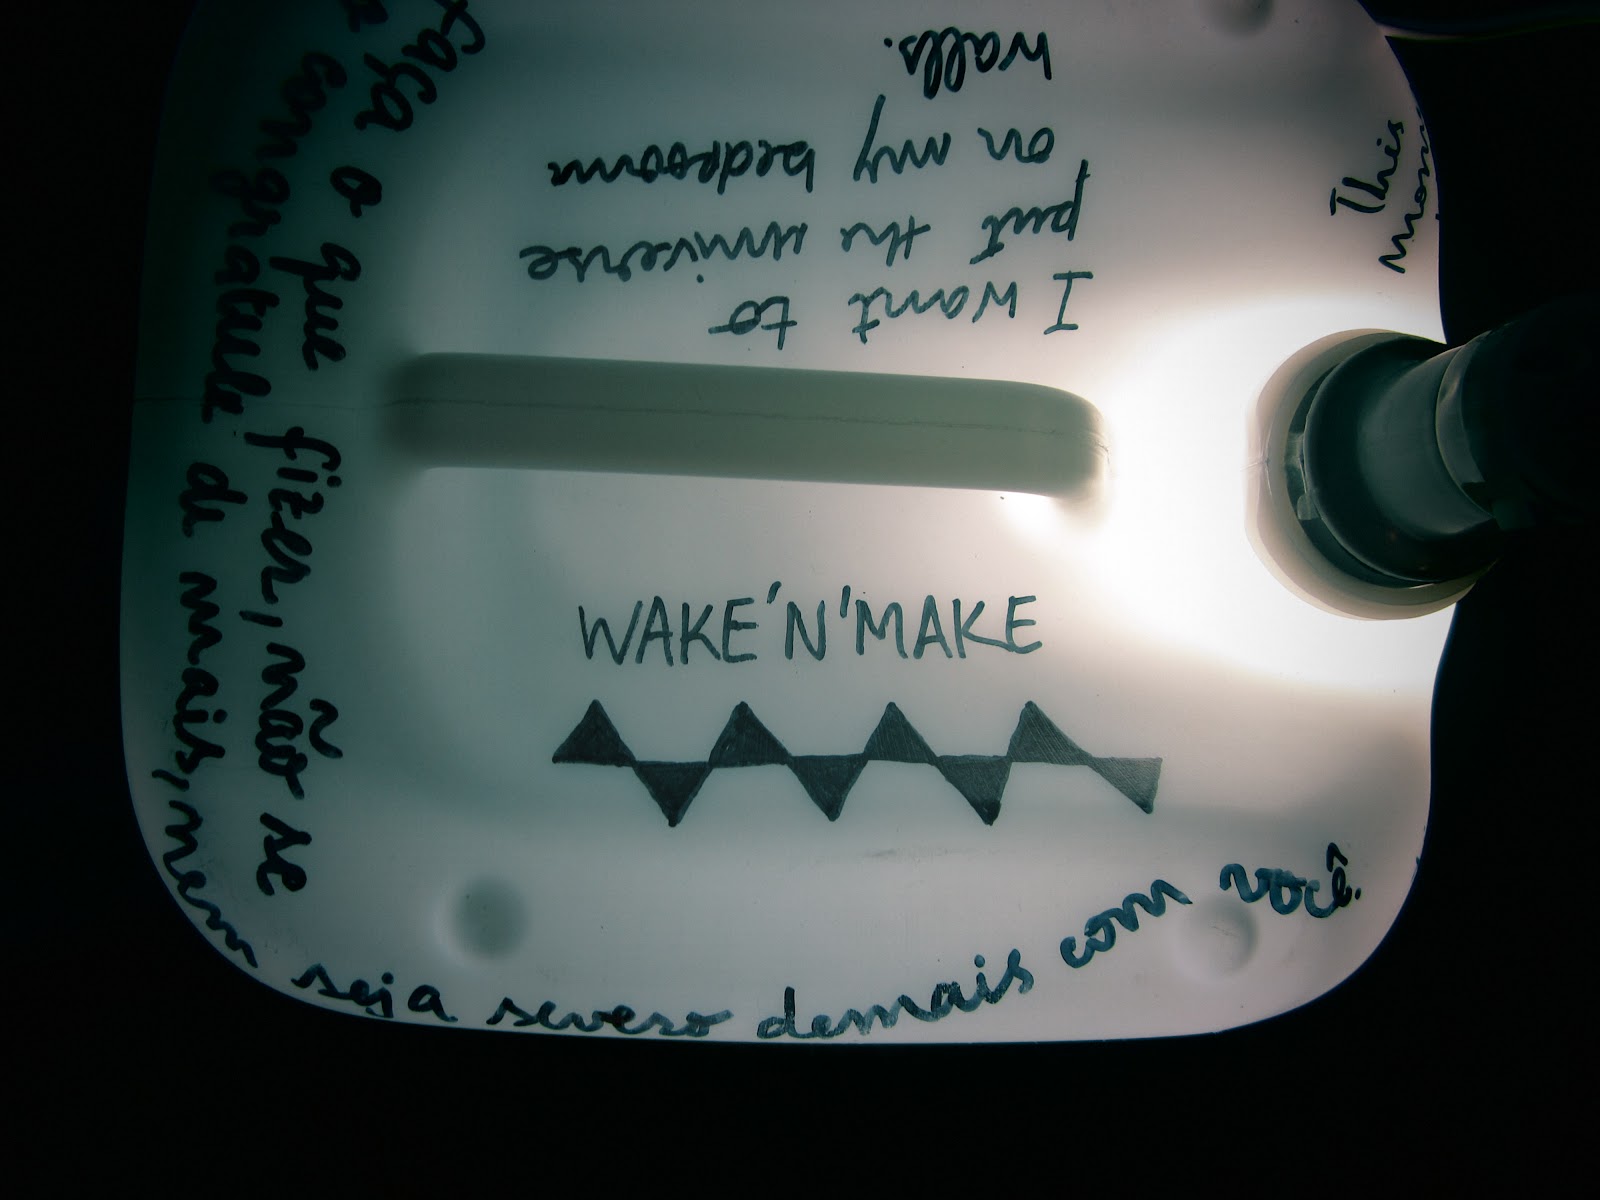 I want to
put the universe
on my bedroom
walls.
This
WAKE'N'MAKE
faça o que fizer, não se
congratule di mais, nem seja severo demais com você.